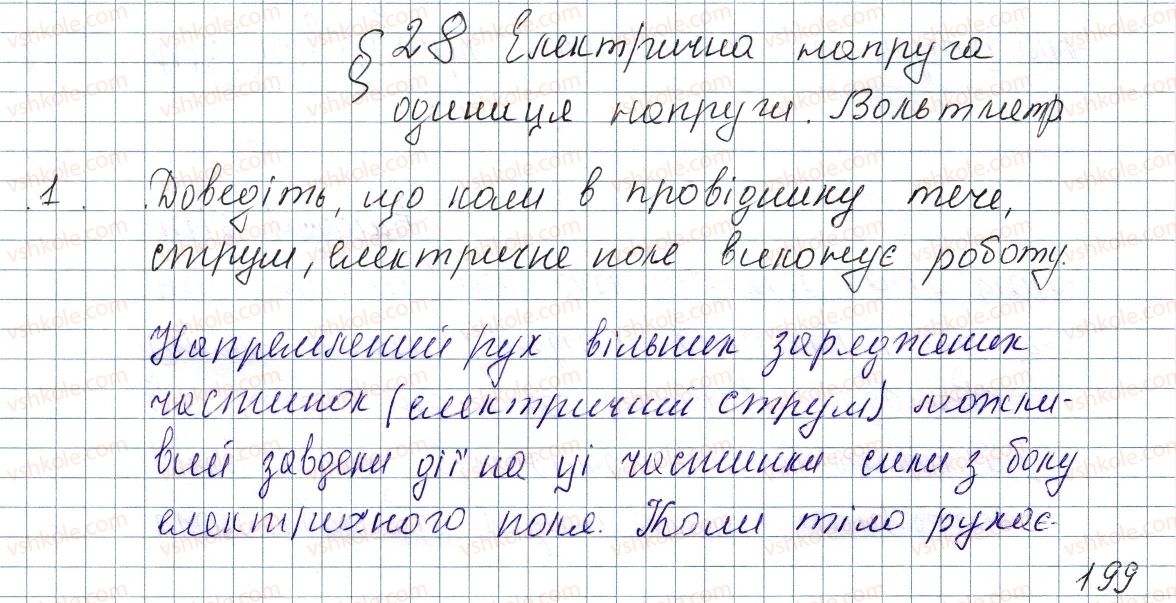 § 28 Електрична напруга
одиниця напруги. Вольтметр
1. Доведіть, що коли в провіднику тече,
струм, електричне поле виконує роботу.
Напрямлений рух вільних заряджених
частинок (електричний струм) можли-
вий завдяки дії на ці частинки сили з боку
електричного поля. Коли тіло рухає-
199